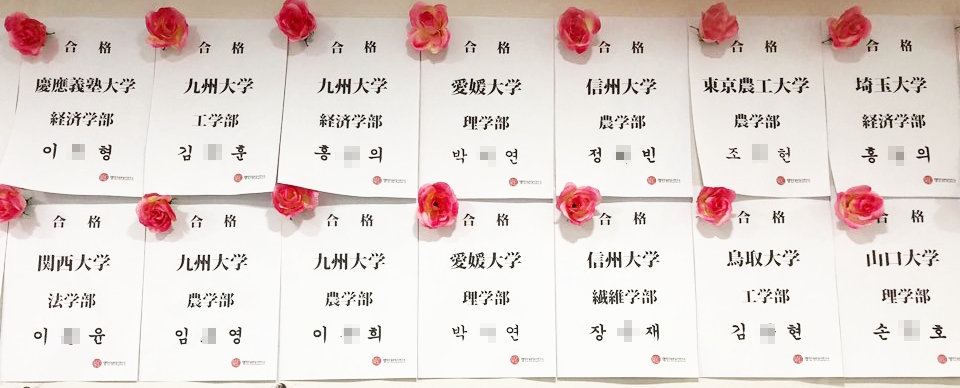 合 格
慶應義塾大学
経済学部
이 형
合 格
九州大学
工学部
김 훈
合 格
九州大学
経済学部
홍 의
合 格
愛媛大学
理学部
박 연
合 格
信州大学
農学部
정 빈
合 格
東京農工大学
農学部
조 헌
合 格
埼玉大学
経済学部
홍 의
合 格
関西大学
法学部
이 윤
合 格
九州大学
農学部
임 영
合 格
九州大学
農学部
이 희
合 格
愛媛大学
理学部
박 연
合 格
信州大学
繊維学部
장 재
合 格
鳥取大学
工学部
김 현
合 格
山口大学
理学部
손 호